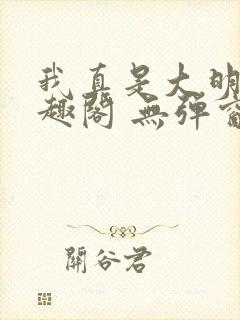 我真是大明
趣阁 無弹窗
關谷君